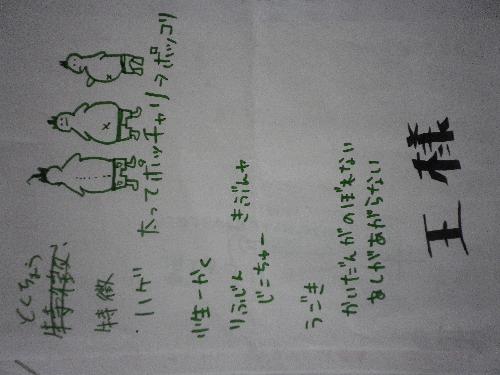 とくちょう
特徴
・ハゲ 太ってポッチャリっポッコリ
性ーかく
りふじん きぶんや
じこちゅー
うごき
かいだんがのぼれない
あしがあがらない
王様